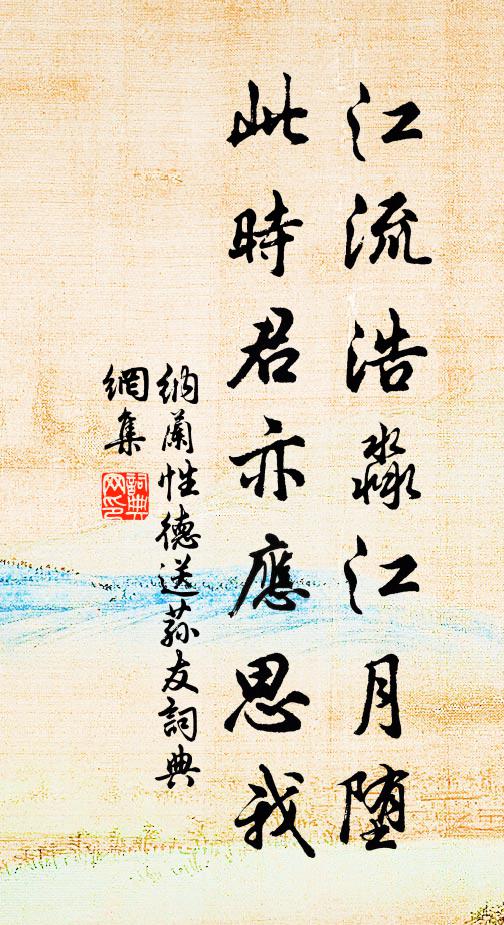 江流浩淼江月堕
此時君亦應思我
納蘭性德送蓀友詞典
網集
詞典
网印